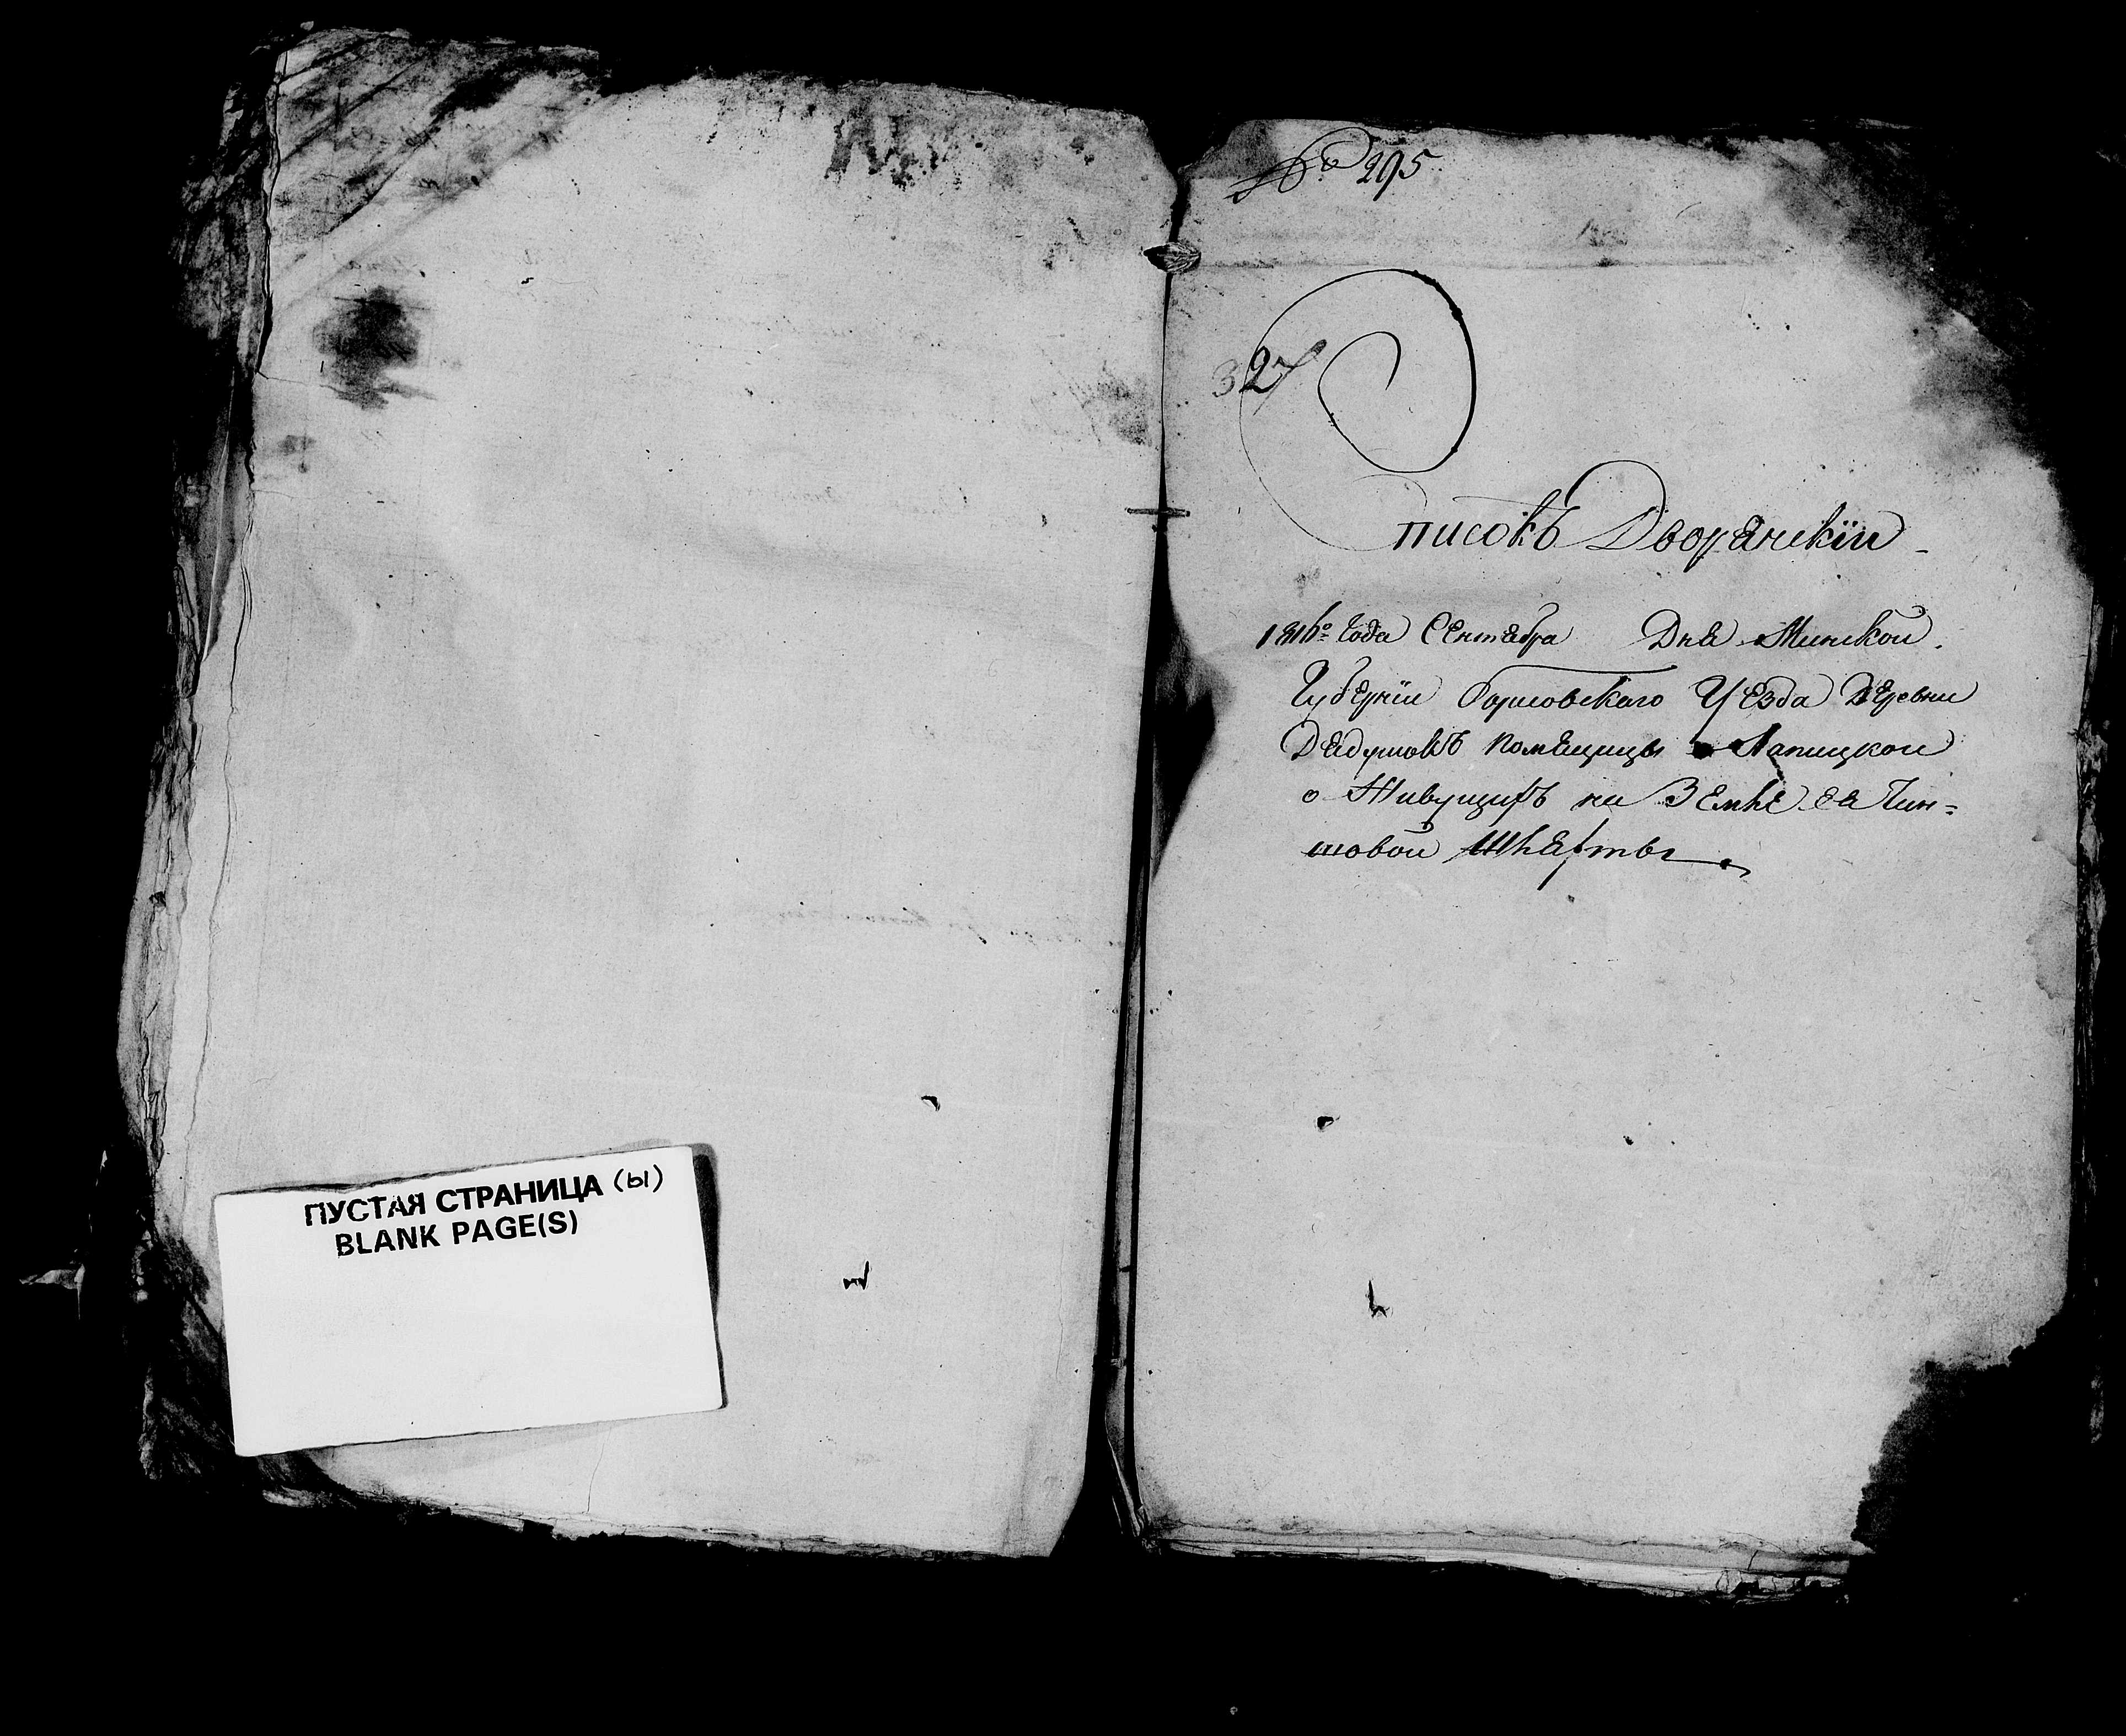 ПУСТАЯ СТРАНИЦА (ы)
BLANK PAGE(S)
№ 295
327
Списокъ Дворянскiй
1816го Года Сентября Дня Минской
Губернiи Борисовскаго Уезда Деревни
Дедушокъ помещицы Лапицкой
о Живущихъ на Земле ея Чин=
шовой Шляхты